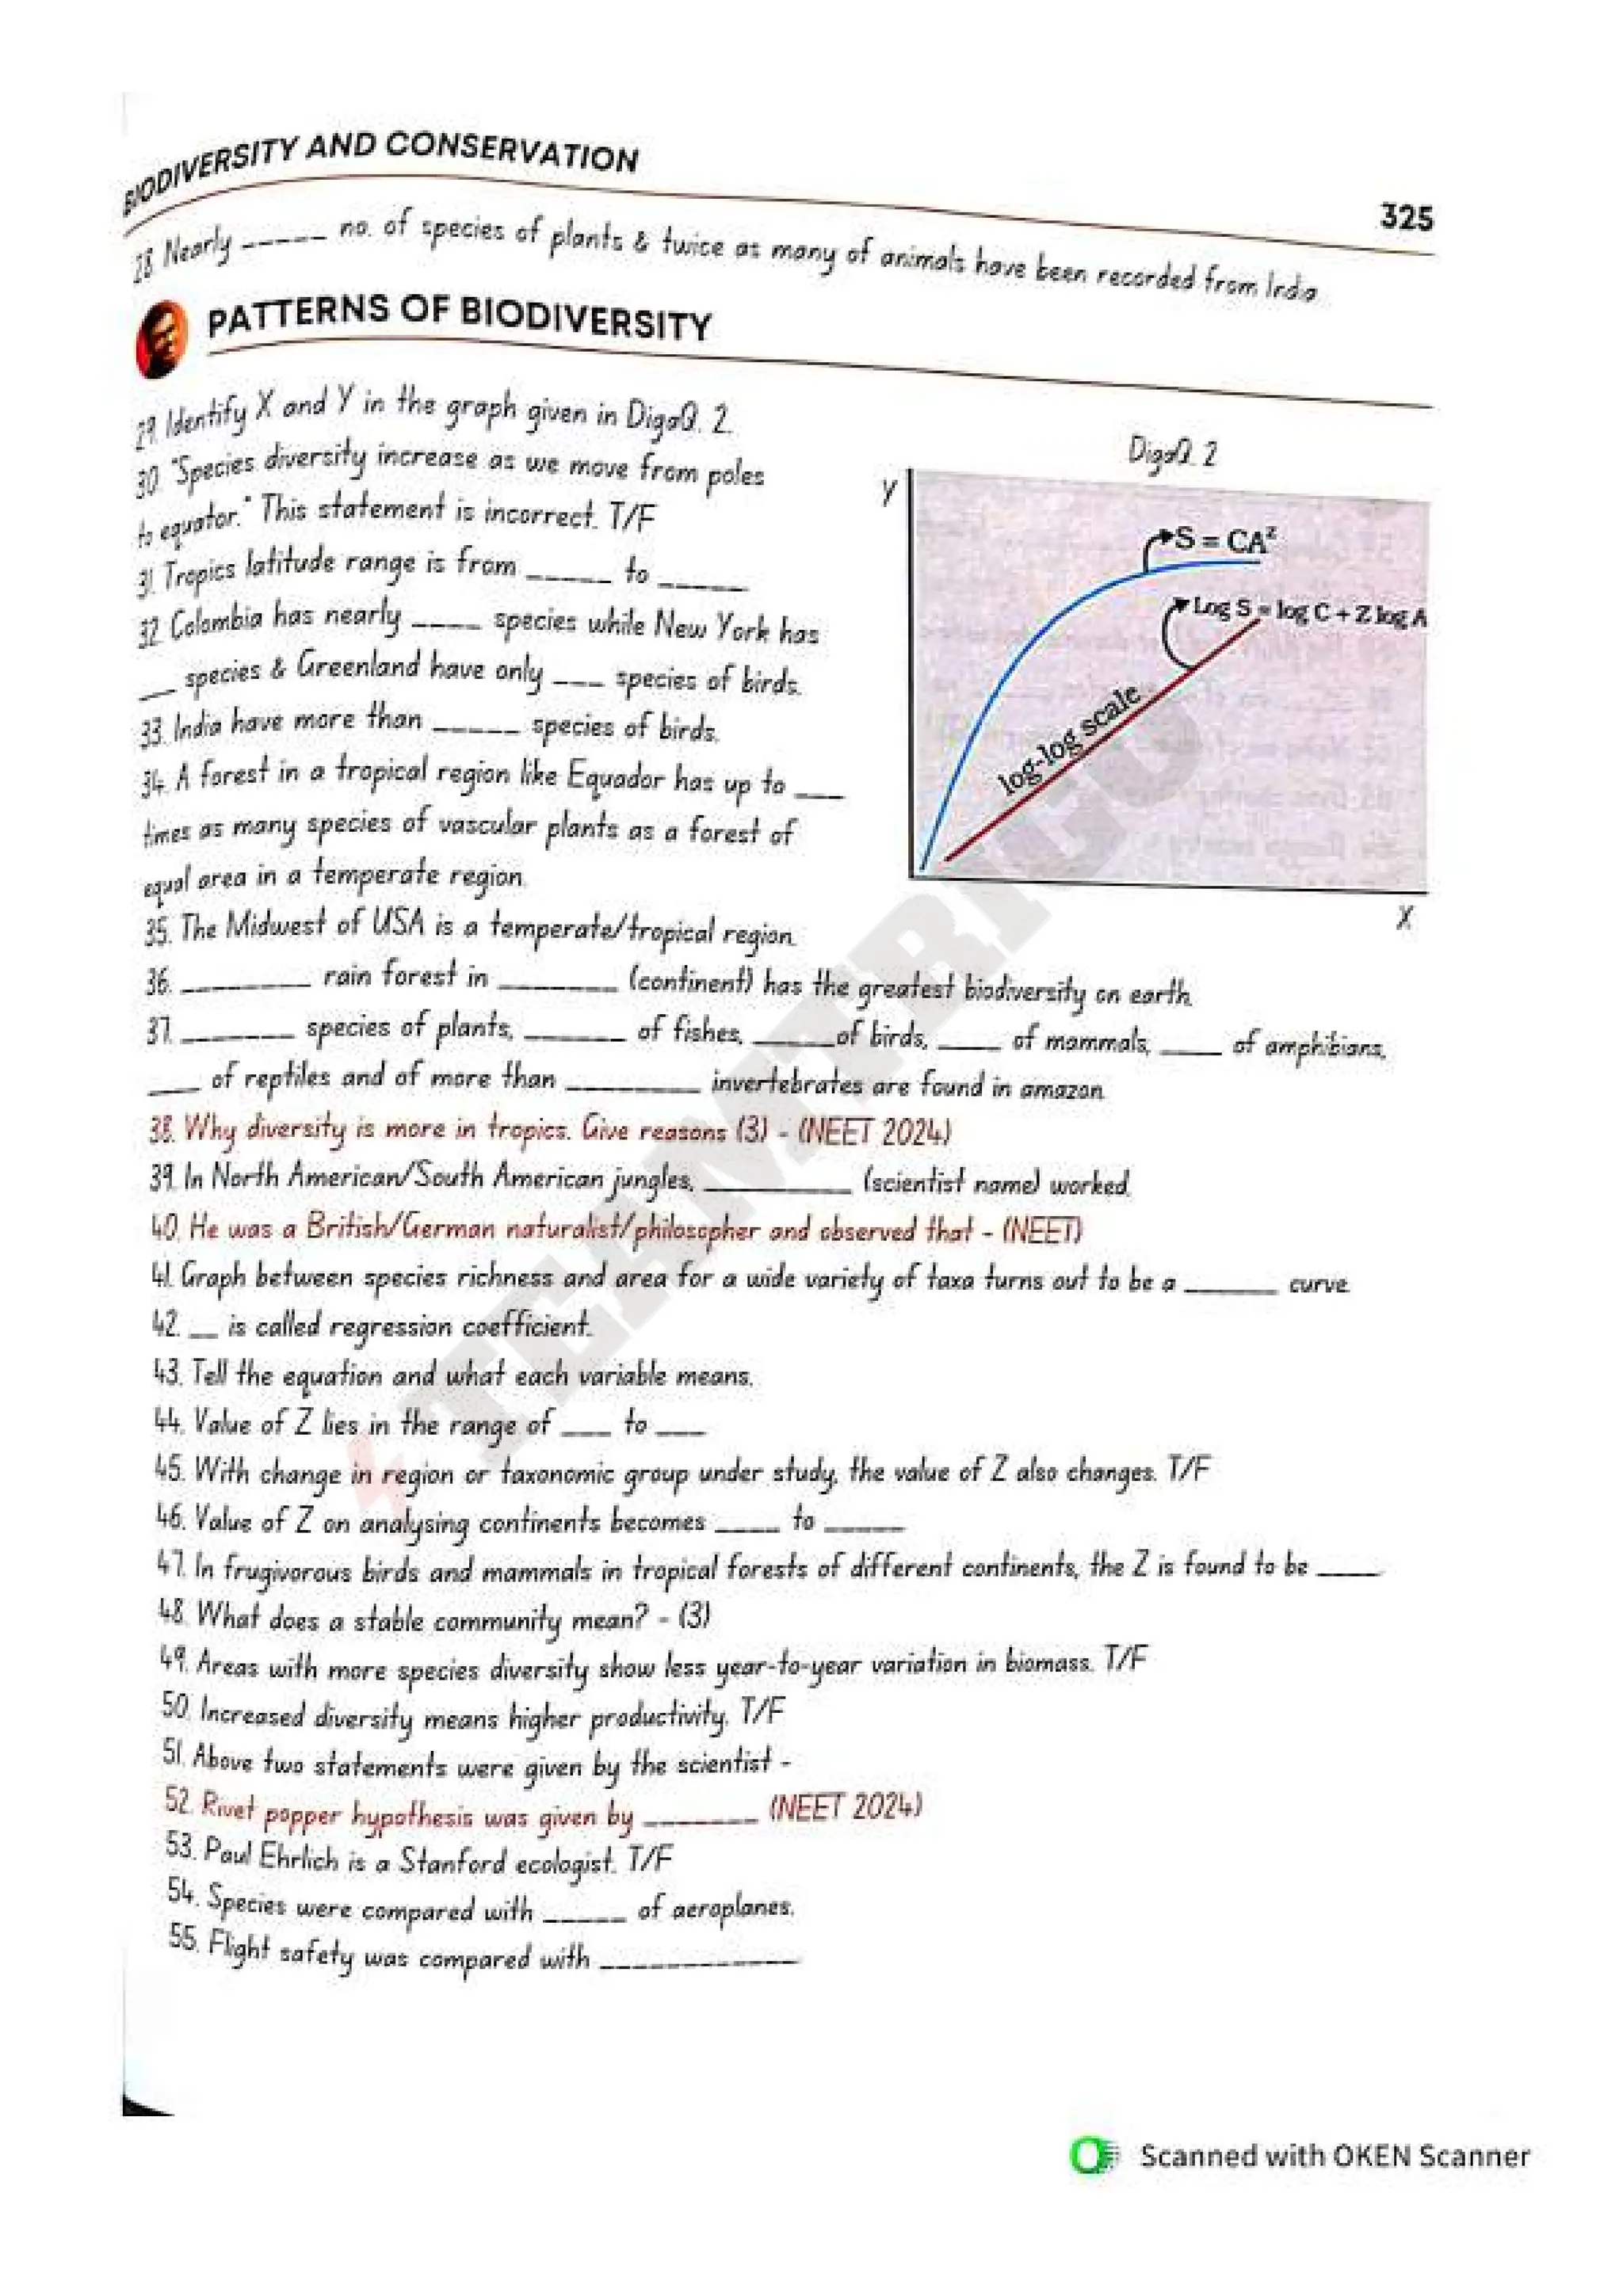 BIODIVERSITY AND CONSERVATION
325
28. Nearly _____ no. of species of plants & twice as many of animals have been recorded from India.
PATTERNS OF BIODIVERSITY
29. Identify X and Y in the graph given in DigaQ. 2.
30. "Species diversity increase as we move from poles
to equator." This statement is incorrect. T/F
31. Tropics latitude range is from _____ to _____
32. Colombia has nearly ____ species while New York has
__ species & Greenland have only ___ species of birds.
33. India have more than _____ species of birds.
34. A forest in a tropical region like Equador has up to ___
times as many species of vascular plants as a forest of
equal area in a temperate region.
DigaQ. 2
Y
S = CA^Z
Log S = log C + Z log A
log-log scale
X
35. The Midwest of USA is a temperate/tropical region.
36. ________ rain forest in _______ (continent) has the greatest biodiversity on earth.
37. _______ species of plants, ______ of fishes, _____of birds, ____ of mammals, ____ of amphibians,
___ of reptiles and of more than ________ invertebrates are found in amazon.
38. Why diversity is more in tropics. Give reasons (3) - (NEET 2024)
39. In North American/South American jungles, _________ (scientist name) worked.
40. He was a British/German naturalist/philosopher and observed that - (NEET)
41. Graph between species richness and area for a wide variety of taxa turns out to be a ______ curve.
42. __ is called regression coefficient.
43. Tell the equation and what each variable means.
44. Value of Z lies in the range of ___ to ___
45. With change in region or taxonomic group under study, the value of Z also changes. T/F
46. Value of Z on analysing continents becomes ____ to _____
47. In frugivorous birds and mammals in tropical forests of different continents, the Z is found to be ____.
48. What does a stable community mean? - (3)
49. Areas with more species diversity show less year-to-year variation in biomass. T/F
50. Increased diversity means higher productivity. T/F
51. Above two statements were given by the scientist -
52. Rivet popper hypothesis was given by _______ (NEET 2024)
53. Paul Ehrlich is a Stanford ecologist. T/F
54. Species were compared with _____ of aeroplanes.
55. Flight safety was compared with ____________
Scanned with OKEN Scanner